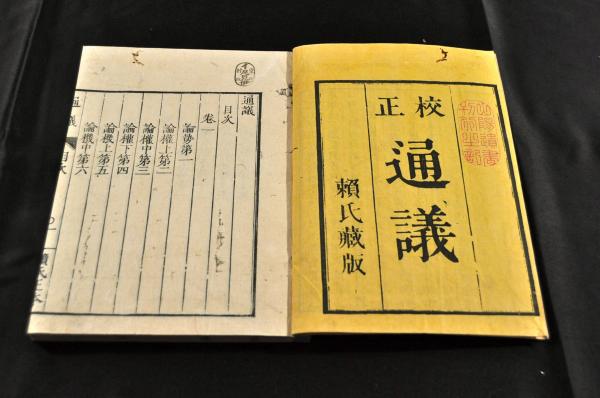 校正
通議
賴氏藏版
山陽遺書
通議
目次
卷一
論勢第一
論權上第二
論權中第三
論權下第四
論機上第五
論機中第六
通議 目次